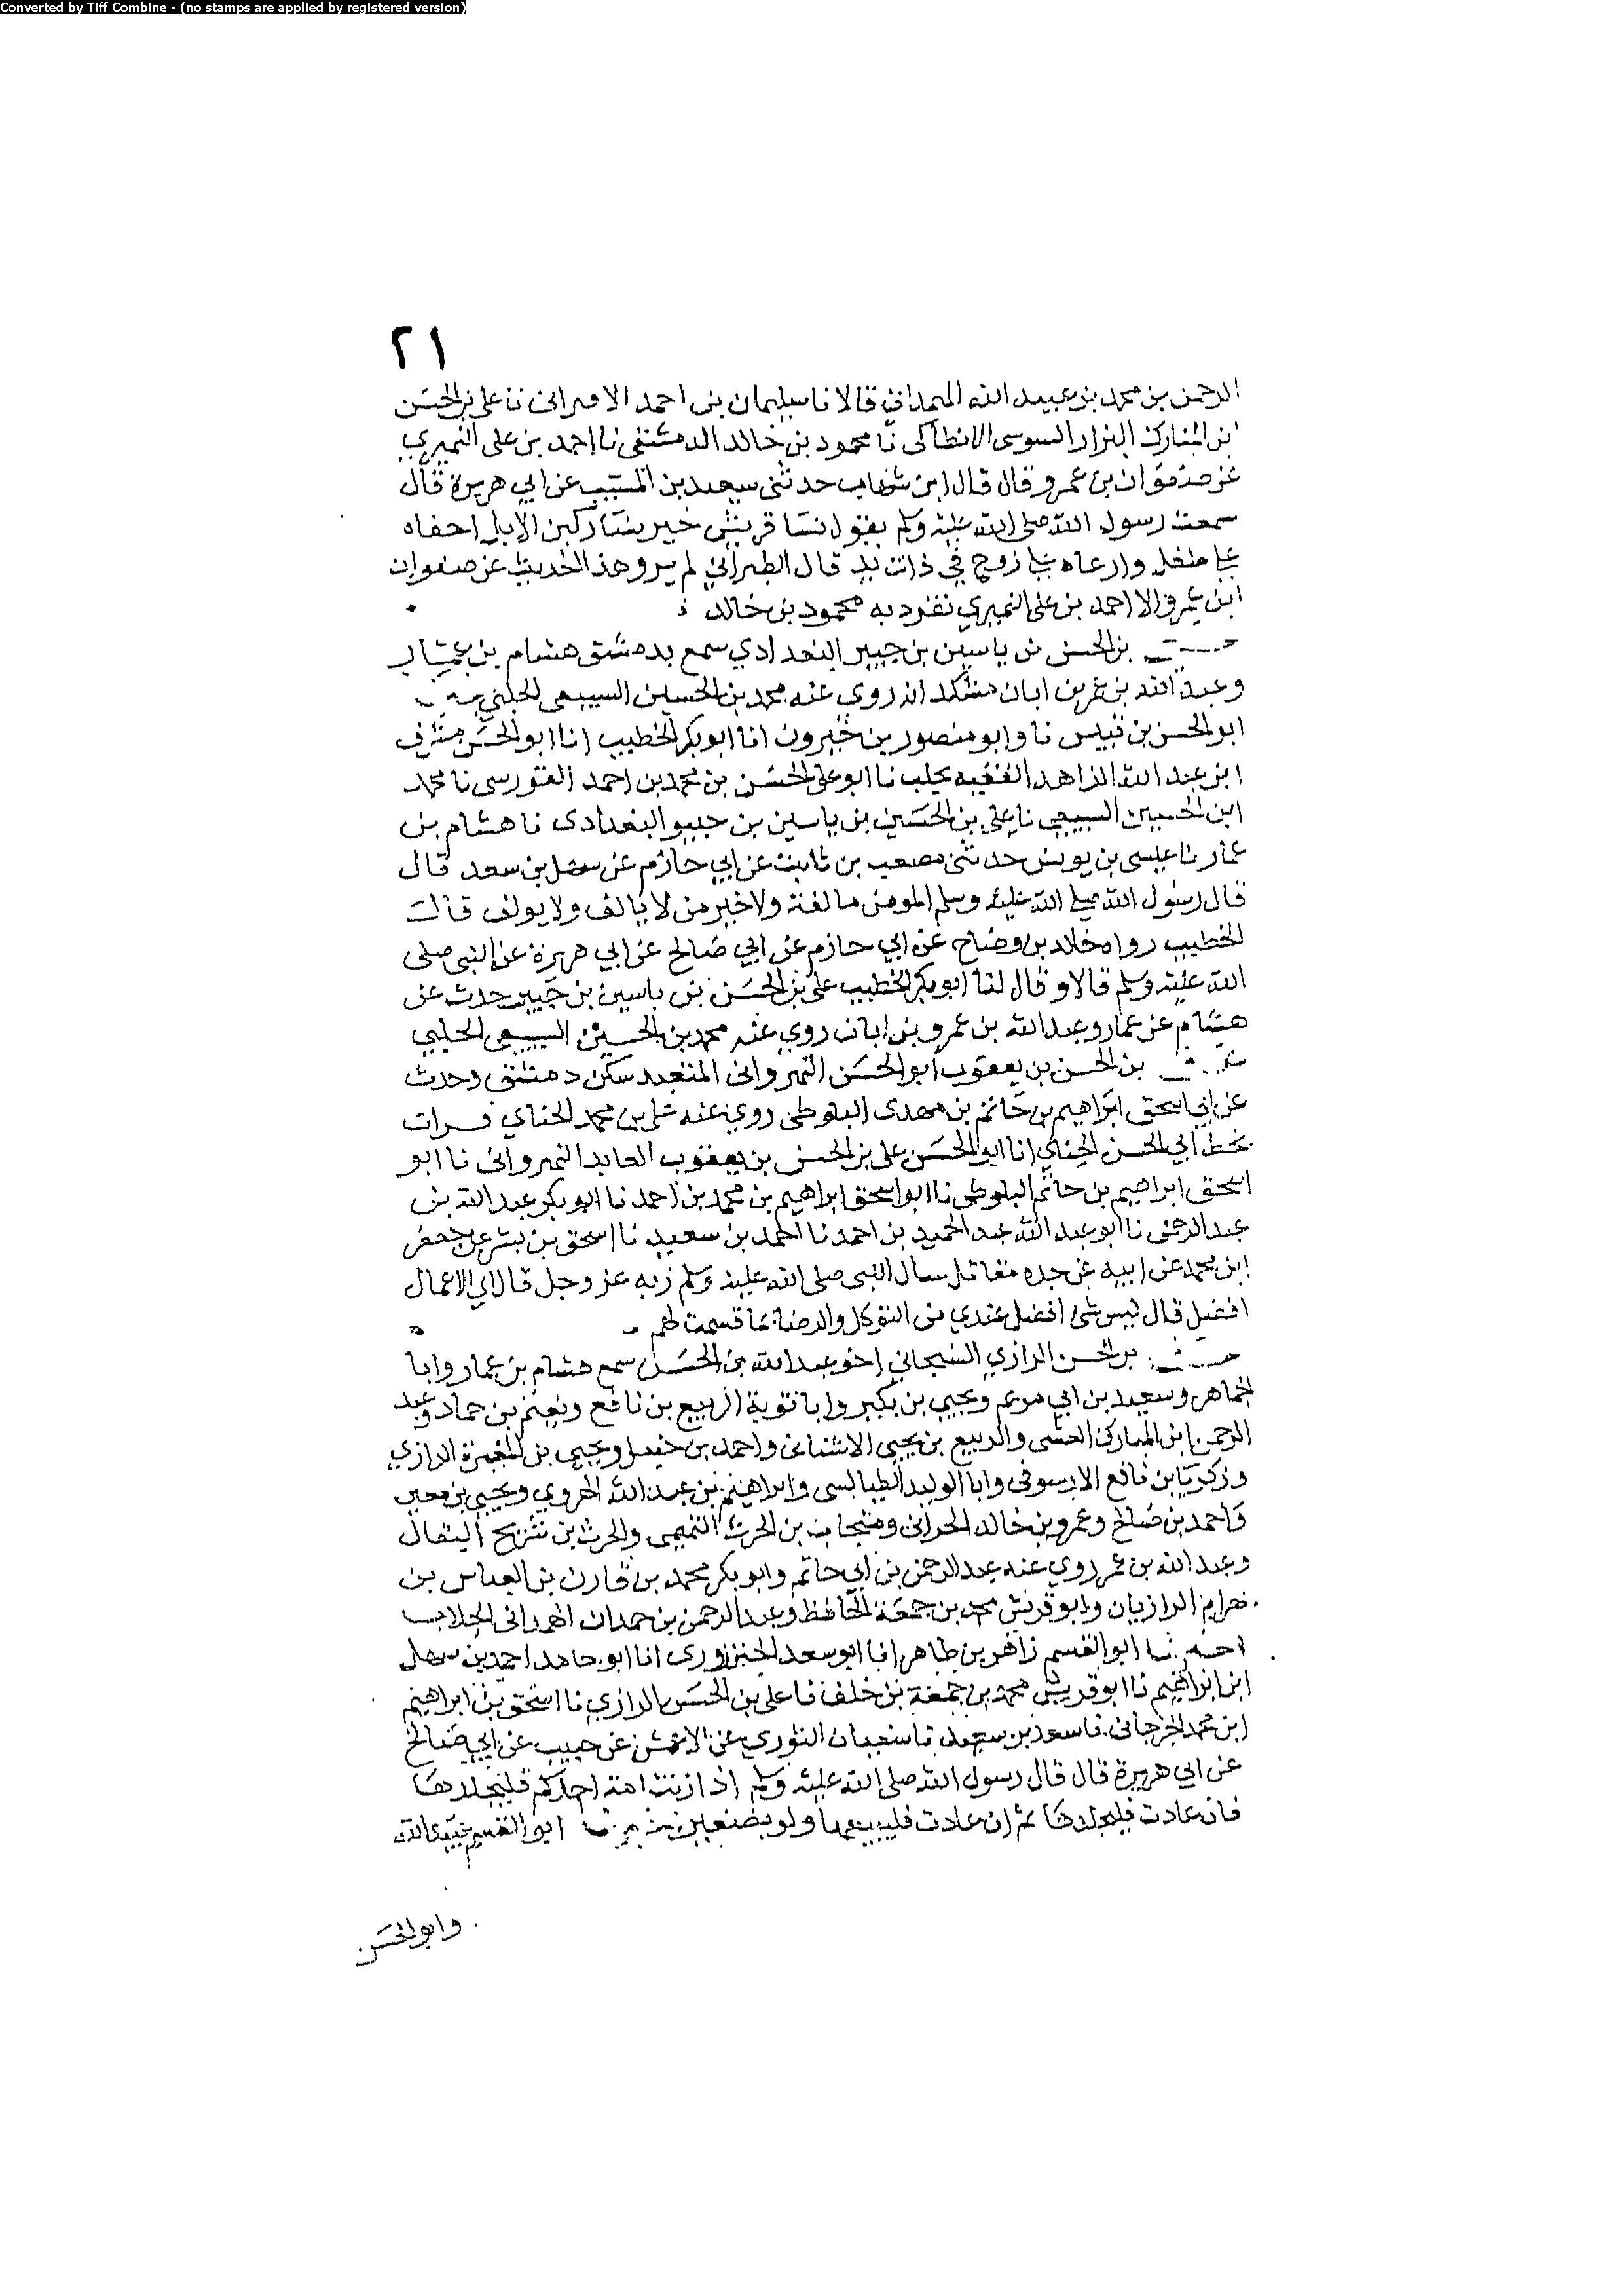 Converted by Tiff Combine - (no stamps are applied by registered version)
٢١
الرحمن بن محمد بن عبيد الله الهمداني قالا نا سليمان بن احمد الاصبراني نا علي بن الحسن
ابن المبارك البزار السوسي الانطاكي نا محمود بن خالد الدمشقي نا احمد بن علي النميري
عن صفوان بن عمرو قال قال ابن شهاب حدثني سعيد بن المسيب عن ابي هريرة قال
سمعت رسول الله صلى الله عليه وسلم يقول نسا قريش خير نسا ركبن الابل احفاه
على طفل وارعاه على زوج في ذات يد قال الطبراني لم يرو هذا الحديث عن صفوان
ابن عمرو الا احمد بن علي النميري تفرد به محمود بن خالد
بن الحسن بن ياسين بن جبير البغدادي سمع بدمشق هشام بن عمار
وعبد الله بن عمر بن ابان مشكدانه روى عنه محمد بن الحسين السبيعي الحلبي
ابو الحسن بن قبيس نا وابو منصور بن خيرون انا ابو بكر الخطيب انا ابو الحسن مشرف
ابن عبد الله الزاهد الفقيه بحلب نا ابو علي الحسن بن محمد بن احمد القورسي نا محمد
ابن الحسين السبيعي نا علي بن الحسين بن ياسين بن جبير البغدادي نا هشام بن
عمار نا عيسى بن يونس حدثني مصعب بن ثابت عن ابي حازم عن سهل بن سعد قال
قال رسول الله صلى الله عليه وسلم المومن مالفة ولا خير من لا يالف ولا يولف قال
الخطيب رواه خلاد بن وضاح عن ابي حازم عن ابي صالح عن ابي هريرة عن النبي صلى
الله عليه وسلم قالا وقال لنا ابو بكر الخطيب علي بن الحسن بن ياسين بن جبير حدث عن
هشام عن عمار وعبد الله بن عمرو بن ابان روى عنه محمد بن الحسين السبيعي الحلبي
بن الحسن بن يعقوب ابو الحسن النهرواني المتعبد سكن دمشق وحدث
عن ابي اسحق ابراهيم بن حاتم بن مهدي البلوطي روى عنه علي بن محمد الحناي قرات
بخط ابي الحسن الحناي انا ابو الحسن علي بن الحسن بن يعقوب العابد النهرواني نا ابو
اسحق ابراهيم بن حاتم البلوطي نا ابو اسحق ابراهيم بن محمد بن احمد نا ابو بكر عبد الله بن
عبد الرحمن نا ابو عبد الله عبد الحميد بن احمد نا احمد بن سعيد نا اسحق بن بشر عن جعفر
ابن محمد عن ابيه عن جده مقاتل سال النبي صلى الله عليه وسلم ربه عز وجل قال اي الاعمال
افضل قال ليس شي افضل عندي من التوكل والرضا بما قسمت لهم
بن الحسن الرازي السنجاني اخو عبد الله بن الحسن سمع هشام بن عمار وابا
الجماهر وسعيد بن ابي مريم ويحيى بن بكير وابا توبة الربيع بن نافع ونعيم بن حماد وعبد
الرحمن بن المبارك العشي والربيع بن يحيى الاشناني واحمد بن حنبل ويحيى بن المغيرة الرازي
وزكريا بن نافع الارسوفي وابا الوليد الطيالسي وابراهيم بن عبد الله الهروي ويحيى بن معين
واحمد بن صالح وعمرو بن خالد الحراني ومنجاب بن الحرث التميمي والحرث بن شريح النقال
وعبد الله بن عمر روى عنه عبد الرحمن بن ابي حاتم وابو بكر محمد بن قارن بن العباس بن
بهرام الرازيان وابو قريش محمد بن جمعة الحافظ وعبد الرحمن بن حمدان الهمداني الجلاب
اخبرنا ابو القسم زاهر بن طاهر انا ابو سعد الجنزروذي انا ابو حامد احمد بن سهل
ابن ابراهيم نا ابو قريش محمد بن جمعة بن خلف نا علي بن الحسن الرازي نا اسحق بن ابراهيم
ابن محمد الجرجاني نا سعد بن سعيد نا سفيان الثوري عن الاعمش عن حبيب عن ابي صالح
عن ابي هريرة قال قال رسول الله صلى الله عليه وسلم اذا زنت امة احدكم فليجلدها
فان عادت فليجلدها ثم ان عادت فليبيعها ولو بضفير ابو القسم عبيد الله
وابو الحسن